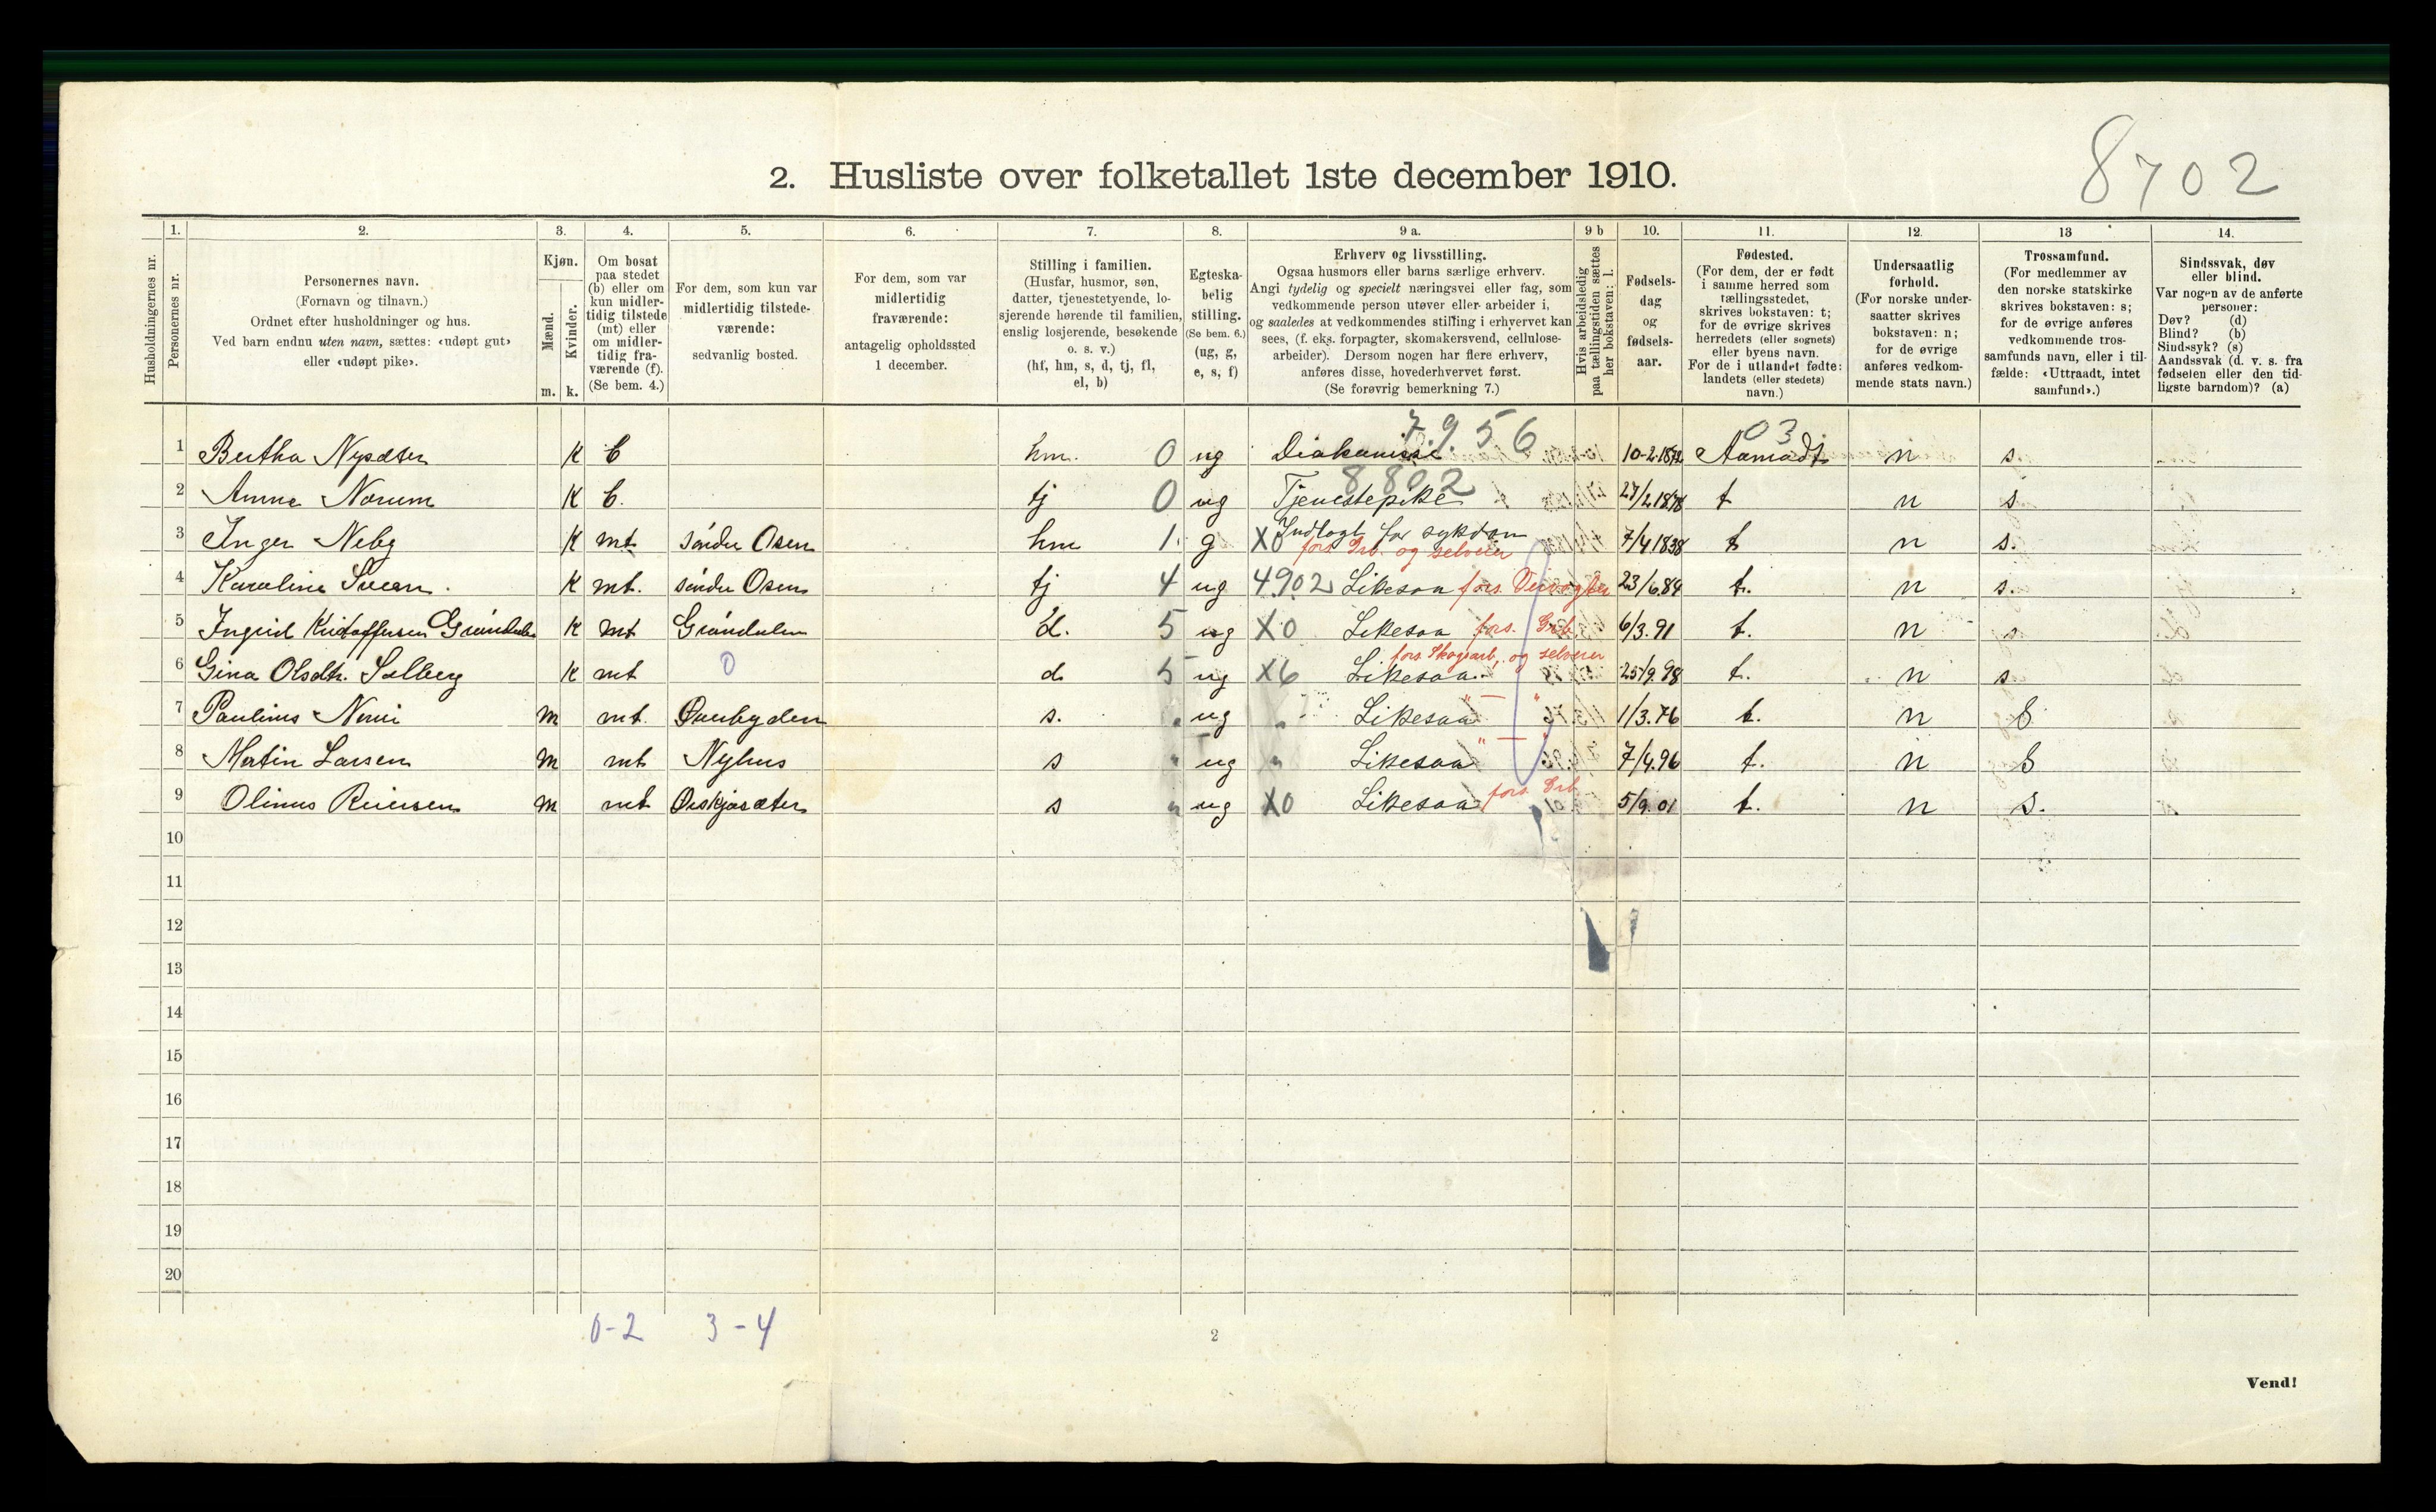 8702
2. Husliste over folketallet 1ste december 1910.
Husholdningernes nr.
1. Personernes nr.
2. Personernes navn. (Fornavn og tilnavn.) Ordnet efter husholdninger og hus. Ved barn endnu uten navn, sættes: «udøpt gut» eller «udøpt pike».
3. Kjøn. Mænd. m. Kvinder. k.
4. Om bosat paa stedet (b) eller om kun midlertidig tilstede (mt) eller om midlertidig fraværende (f). (Se bem. 4.)
5. For dem, som kun var midlertidig tilstedeværende: sedvanlig bosted.
6. For dem, som var midlertidig fraværende: antagelig opholdssted 1 december.
7. Stilling i familien. (Husfar, husmor, søn, datter, tjenestetyende, losjerende hørende til familien, enslig losjerende, besøkende o. s. v.) (hf, hm, s, d, tj, fl, el, b)
8. Egteskabelig stilling. (Se bem. 6.) (ug, g, e, s, f)
9 a. Erhverv og livsstilling. Ogsaa husmors eller barns særlige erhverv. Angi tydelig og specielt næringsvei eller fag, som vedkommende person utøver eller arbeider i, og saaledes at vedkommendes stilling i erhvervet kan sees, (f. eks. forpagter, skomakersvend, cellulosearbeider). Dersom nogen har flere erhverv, anføres disse, hovederhvervet først. (Se forøvrig bemerkning 7.)
9 b Hvis arbeidsledig paa tællingstiden sættes her bokstaven: l.
10. Fødselsdag og fødselsaar.
11. Fødested. (For dem, der er født i samme herred som tællingsstedet, skrives bokstaven: t; for de øvrige skrives herredets (eller sognets) eller byens navn. For de i utlandet fødte: landets (eller stedets) navn.)
12. Undersaatlig forhold. (For norske undersaatter skrives bokstaven: n; for de øvrige anføres vedkommende stats navn.)
13 Trossamfund. (For medlemmer av den norske statskirke skrives bokstaven: s; for de øvrige anføres vedkommende trossamfunds navn, eller i tilfælde: «Uttraadt, intet samfund».)
14. Sindssvak, døv eller blind. Var nogen av de anførte personer: Døv? (d) Blind? (b) Sindssyk? (s) Aandssvak (d. v. s. fra fødselen eller den tidligste barndom)? (a)
7.956 03
1 Bertha Nysæter K b hm. 0 ug Diakonisse 10-2.1872 Aamodt n s.
8802
2 Anne Norum K b. tj 0 ug Tjenestepike 27/2.1878 t n s
3 Inger Neby K mt søndre Osen hm 1. g X0 Indlagt for sykdom 7/4.1838 t n s.
fors. Grb. og selveier
4 Karoline Sveen. K mt. søndre Osen tj 4 ug 4902 Likesaa fors. 23/6.84 t. n s.
5 Ingrid Kristoffersen Grøndalen K mt Grøndalen d. 5 ug X0 Likesaa fors. Grb. 6/3.91 t. n s
fors. Skogsarb. og selveier
6 Gina Olsdtr. Solberg K mt 0 d 5 ug X6 Likesaa 25/9.98 t. n s
7 Paulinus m mt. s. " ug " Likesaa " — " 1/3.76 t. n S
8 Martin Larsen m mt Nyhus s " ug " Likesaa " — " 7/4.96 t. n S
9 Olinus Reiersen m mt Ørskjæsæter s " ug X0 Likesaa fors. Grb. 5/9.01 t. n s.
10
11
12
13
14
15
16
17
18
19
20
0-2 3-4
2
Vend!